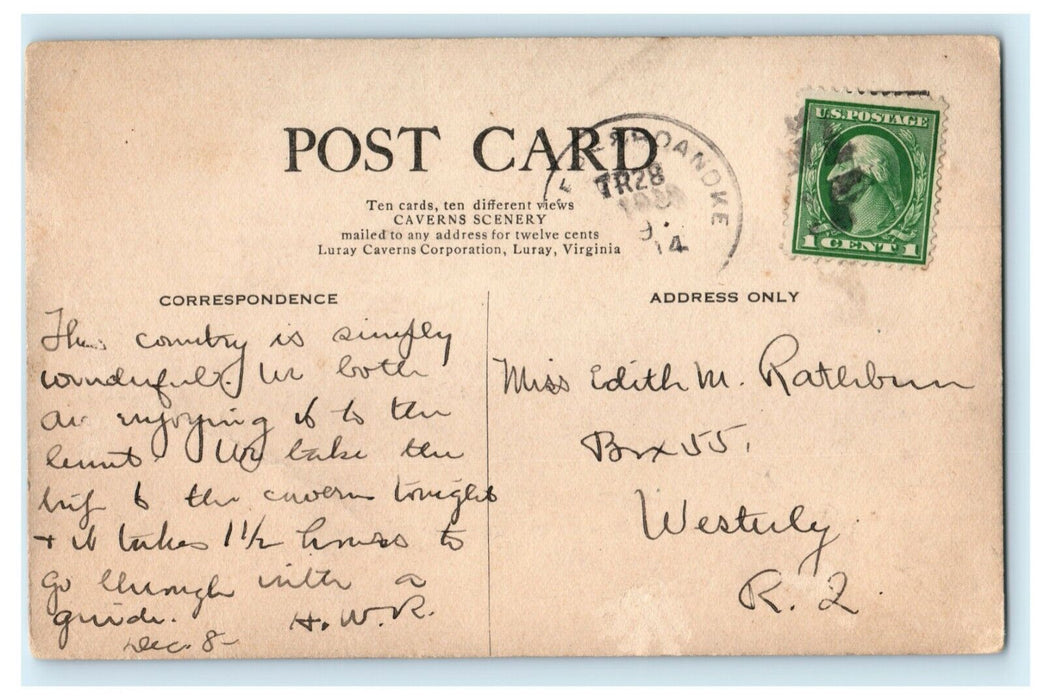 U.S. POSTAGE
1 CENT 1
POST CARD
ROANOKE
TR28
9
14
Ten cards, ten different views
CAVERNS SCENERY
mailed to any address for twelve cents
Luray Caverns Corporation, Luray, Virginia
CORRESPONDENCE
This country is simply
wonderful. We both
are enjoying it to the
limit. We take the
trip to the cavern tonight
+ it takes 1 1/2 hours to
go through with a
guide. H.W.R.
Dec. 8-
ADDRESS ONLY
Miss Edith M. Rathbun
Box 55,
Westerly
R. I.